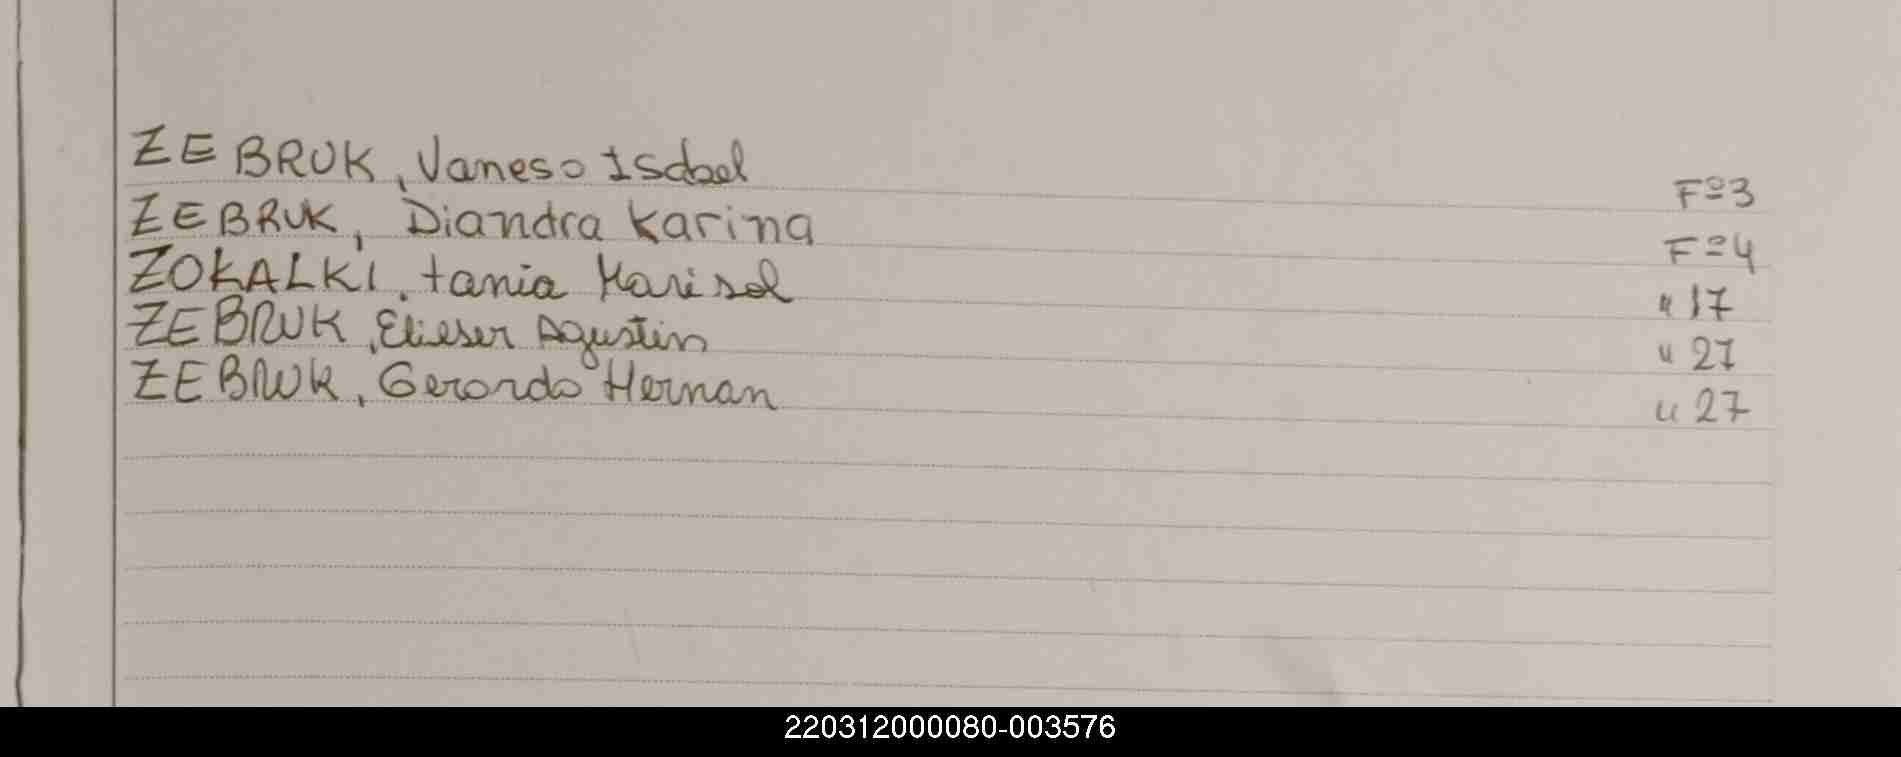 ZEBRUK, Vanesa Isabel Fº3
ZEBRUK, Diandra Karina Fº4
ZOKALKI, tania Marisol " 17
ZEBRUK, Elieser Agustin " 27
ZEBRUK, Gerardo Hernan " 27
220312000080-003576